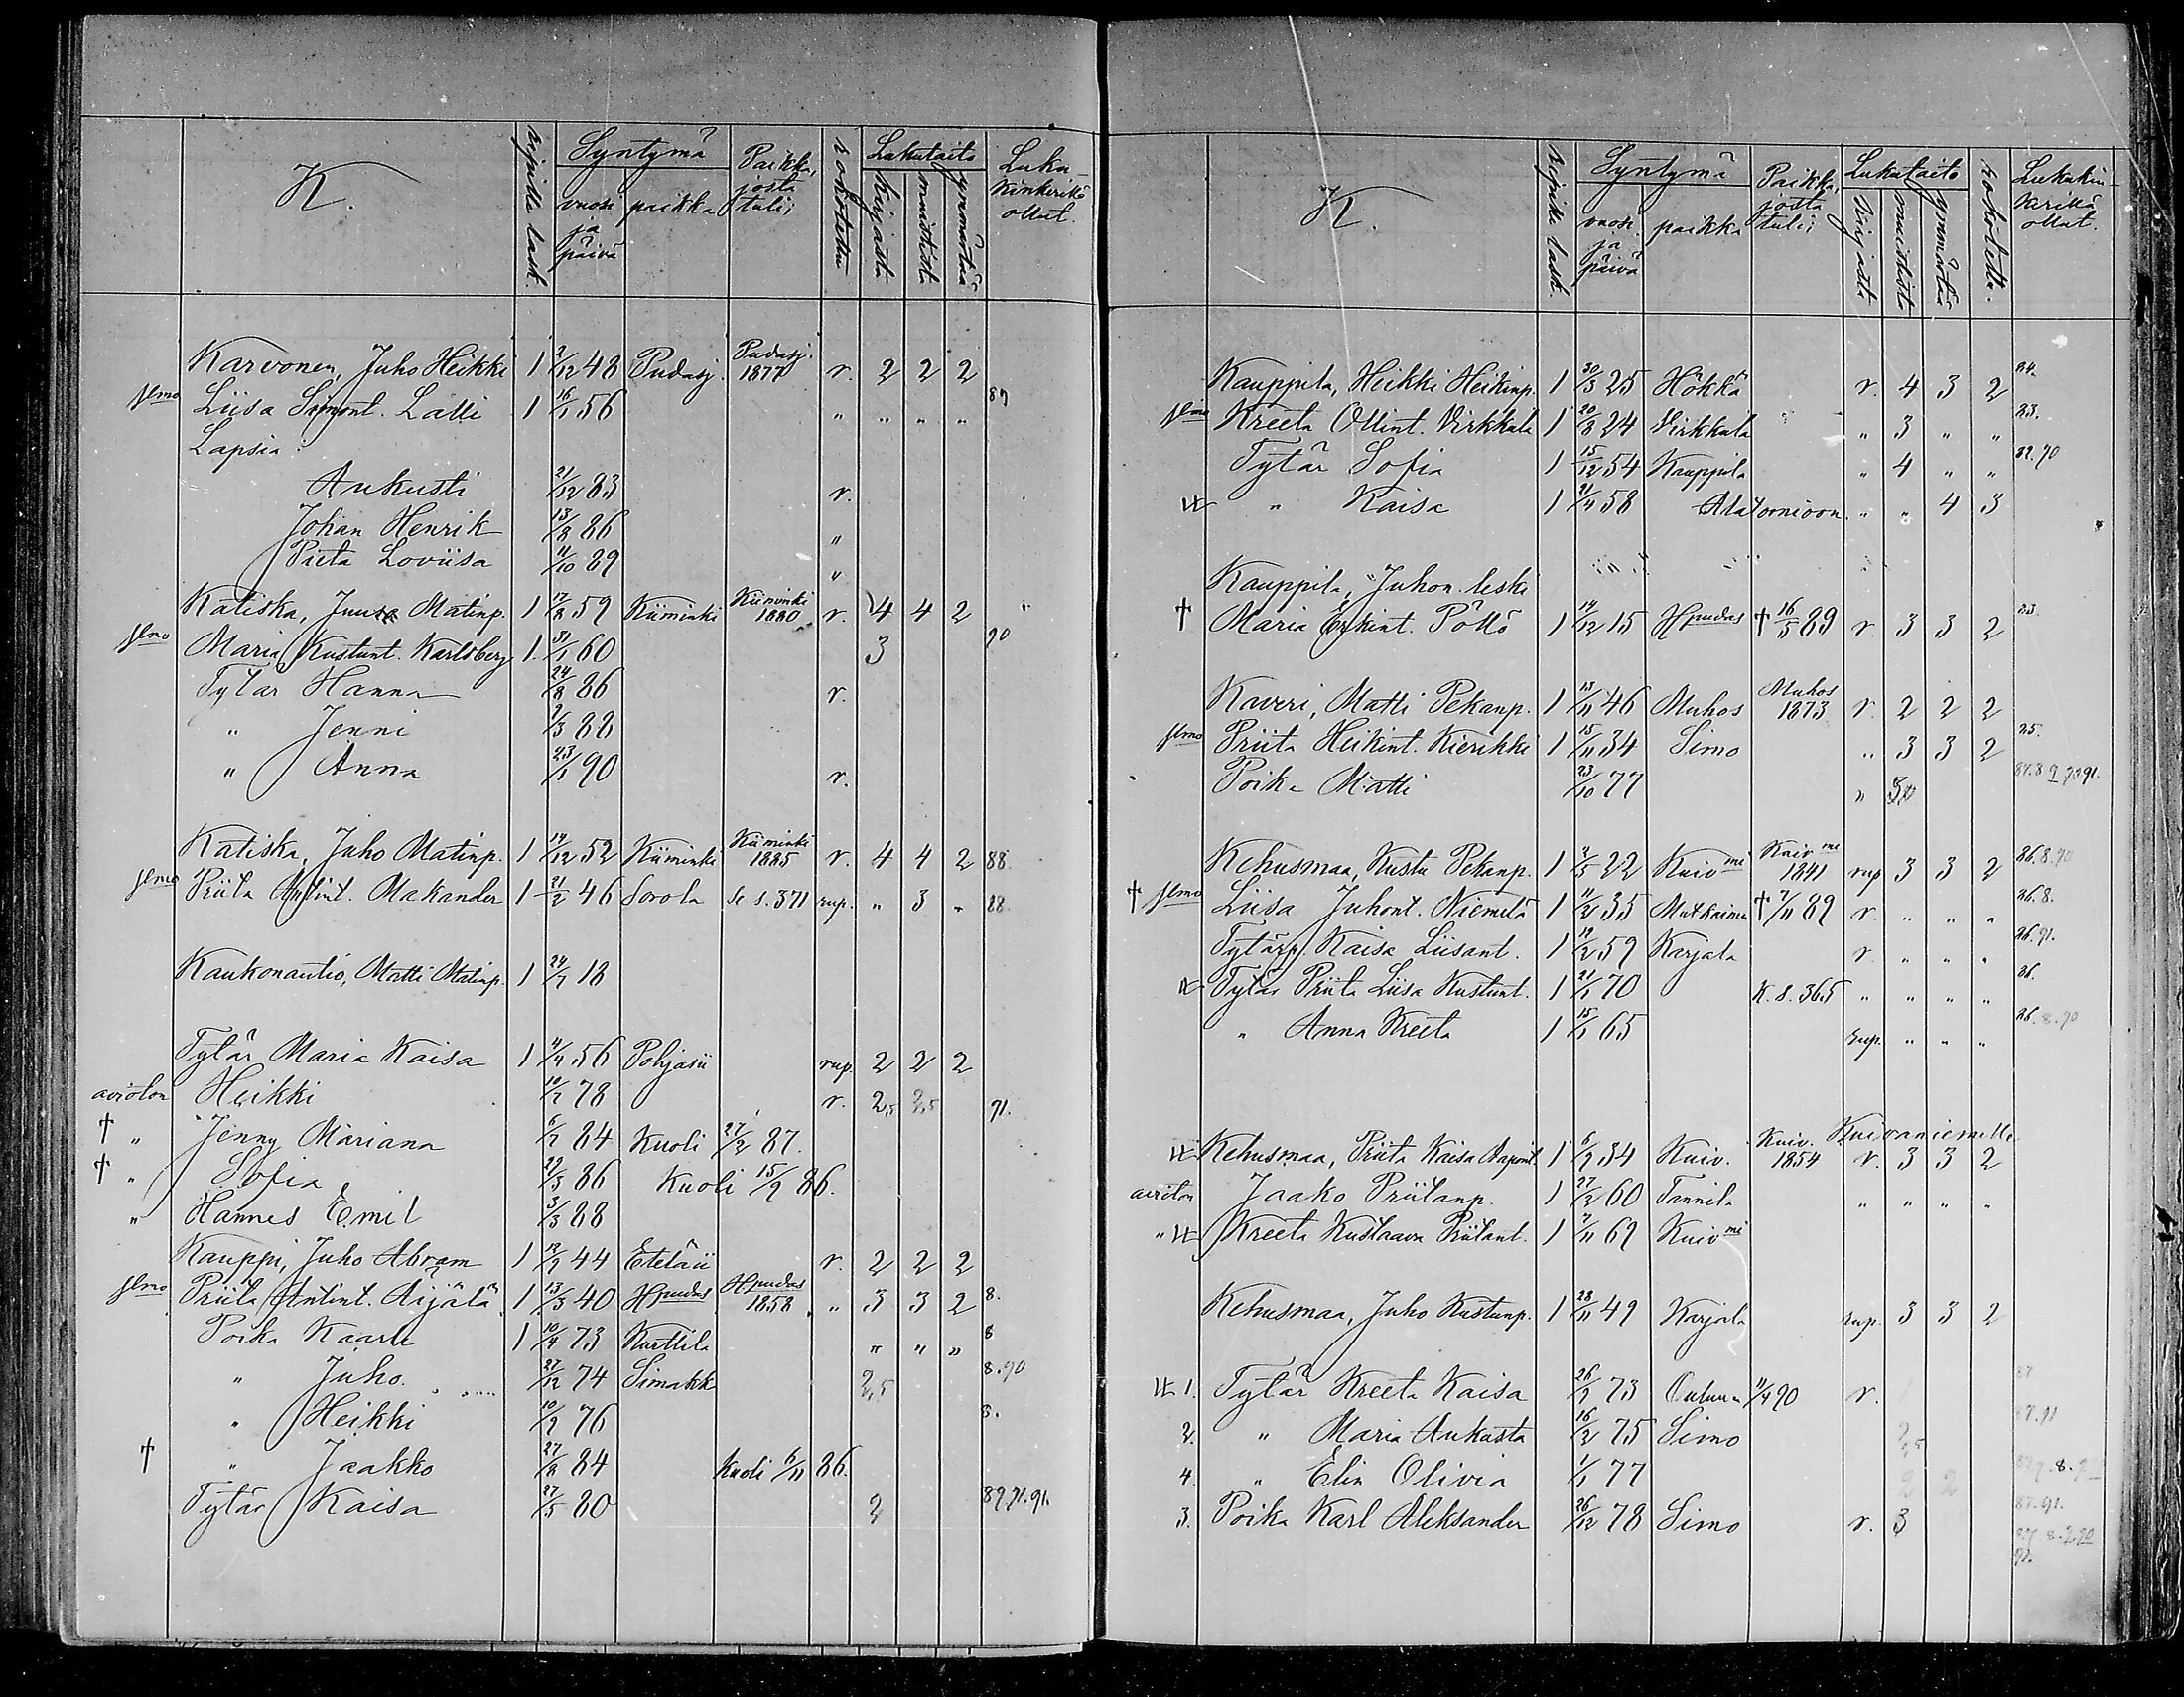 K. Ripille lask. Syntymä vuosi ja päivä paikka Paikka, josta tuli; rokotettu Lukutaito kirjasta muistista ymmärtää Luku-kinkerillä ollut.
Karvonen, Juho Heikki 1 2/12 48 Pudasj. Pudasj. 1877 r. 2 2 2
Liisa Simont. Lätti 1 16/1 56 " " " " 87
Lapsia:
Aukusti 21/12 83 r.
Johan Henrik 13/8 86 "
Pieta Loviisa 11/10 89 "
Katiska, Juuse Matinp. 1 17/8 59 Kiiminki Kiiminki 1880 r. 4 4 2
Maria Kustunt. Karlsberg 1. 31/1 60 3 90
Tytär Hanna 24/8 86 r.
" Jenni 2/3 88
" Anna 23/1 90 r.
Katiska, Juho Matinp. 1 14/12 52 Kiiminki Kiiminki 1885 r. 4 4 2 88.
Priita Antint. Makander 1 21/2 46 Sorola s. 371 rup. " 3 " 88.
Kaukonautio, Matti Matinp. 1 24/7 18
Tytär Maria Kaisa 1 11/4 56 Pohjasii rup. 2 2 2
avioton Heikki 10/7 78 r. 2,5 2,5 91.
† " Jenny Mariana 6/7 84 Kuoli 27/2 87.
† " Sofia 29/3 86 Kuoli 15/9 86.
" Hannes Emil 3/3 88
Kauppi, Juho Abram 1 12/9 44 Eteläii r. 2 2 2
Priita Antint. Äijälä 1 13/3 40 Hpudas Hpudas 1858 " 3 3 2 8.
Poika Kaarle 1 10/4 73 Kurttila " " " 8
" Juho. 27/12 74 Simakk 2,5 8.90
" Heikki 10/9 76 8.
† " Jaakko 27/8 84 Kuoli 6/11 86.
Tytär Kaisa 27/5 80 2
K. Ripille lask. Syntymä vuosi ja päivä paikka Paikka, josta tuli; Lukutaito kirjasta muistista ymmärtää rokotettu Lukukinkerillä ollut.
Kauppila, Heikki Heikinp. 1 30/3 25 Hökkä r. 4 3 2 24.
Kreeta Ollint. Virkkala 1 20/8 24 Virkkala " 3 " " 23.
Tytär Sofia 1 15/12 54 Kauppila " 4 " " 89.90
" Kaisa 1 21/4 58 Alatornioon " " 4 3
Kauppila, Juhon leski
† Maria Erkint. Pöllö 1 14/12 15 Hpudas † 16/5 89 r. 3 3 2 23.
Kaveri, Matti Pekanp. 1 13/11 46 Muhos Muhos 1873 r. 2 2 2
Priita Heikint. Kierikki 1 15/11 34 Simo " 3 3 2 25.
Poika Matti 23/10 77 "
Kehusmaa, Kustu Pekanp. 1 2/5 22 Kuivmi Kuivmi 1841 rup 3 3 2 86.8.90
† Liisa Juhont. Niemelä 1 11/2 35 † 7/11 89 r. " " " 86.8.
Tytärp. Kaisa Liisant. 1 19/2 59 Karjala r. " " " 86.91.
Tytär Priita Liisa Kustunt. 1 21/1 70 K. s. 365 " " " " 86.
" Anna Kreeta 1 15/1 65 rup. " " " 86.8.90
Kuivaniemelle
Kehusmaa, Priita Kaisa Aapont. 1 6/9 34 Kuiv. Kuiv. 1854 r. 3 3 2
avioton Jaako Priitanp. 1 27/2 60 Tannila " " " "
" Kreeta Kustaava Priitant. 1 7/11 69 Kuivmi
Kehusmaa, Juho Kustunp. 1 28/11 49 Karjala rup. 3 3 2
1. Tytär Kreeta Kaisa 26/9 73 Ouluun 11/4 90 r. 87
2. " Maria Aukusta 16/2 75 Simo 2,5 87.91
4. " Elin Olivia 1/1 77 2 2
3. Poika Karl Aleksander 26/12 78 Simo r. 3 87.91.